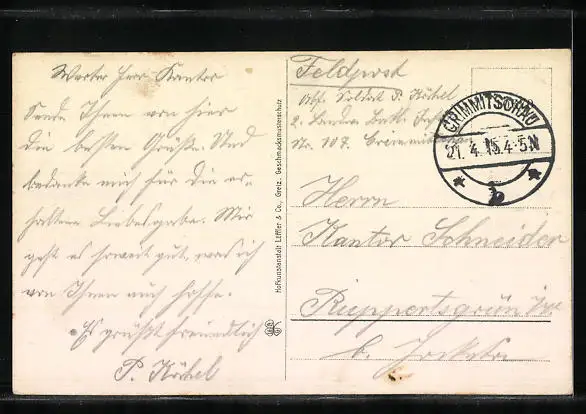 Werter Herr Kantor
Sende Ihnen von hier
die besten Grüße. Und
bedanke mich für die er-
haltene Liebesgabe. Mir
geht es soweit gut, was ich
von Ihnen auch hoffe.
Es grüßt freundlich
P. Köhel
Hofkunstanstalt Löffler & Co., Greiz. Geschmacksmusterschutz
Feldpost
Soldat P. Köhel
2. Landw. Batl. Inf.
No. 107. Crimmitschau
CRIMMITSCHAU
21.4.15.4-5N
b
Herrn
Kantor Schneider
Ruppertsgrün
b.